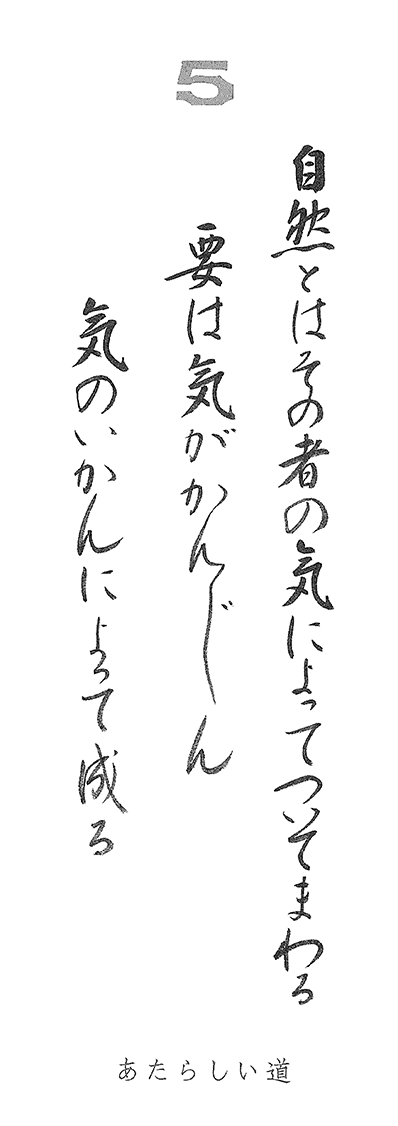 5
自然とはその者の気によってついてまわる
要は気がかんじん
気のいかんによって成る
あたらしい道